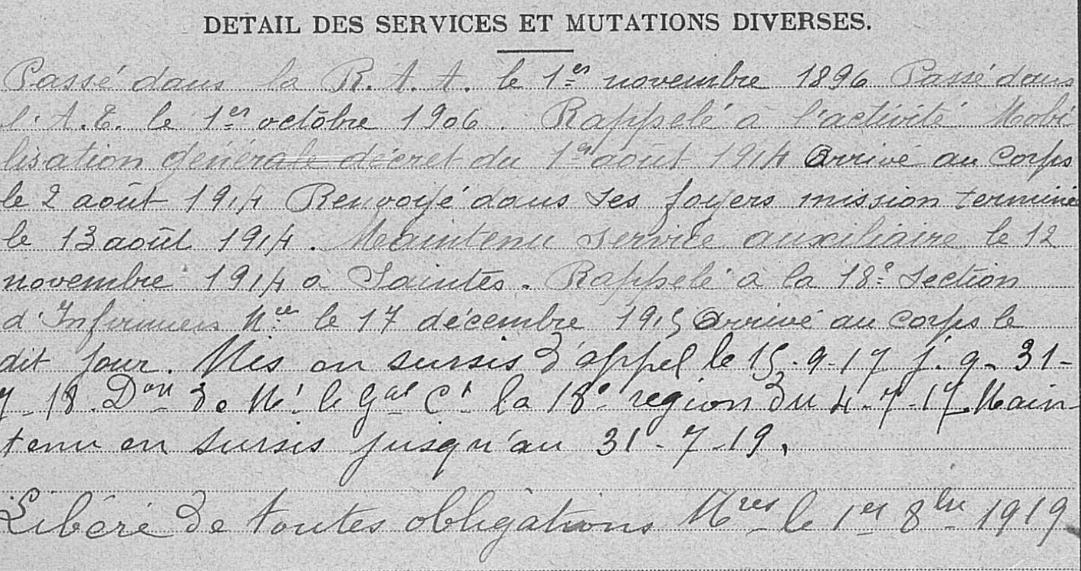 DETAIL DES SERVICES ET MUTATIONS DIVERSES.
Passé dans la R. A. A. le 1er novembre 1896 Passé dans
l'A.E. le 1er octobre 1906. Rappelé à l'activité Mobi
lisation générale décret du 1er août 1914 Arrivé au Corps
le 2 août 1914 Renvoyé dans ses foyers mission terminée
le 13 août 1914. Maintenu service auxiliaire le 12
novembre 1914 à Saintes. Rappelé à la 18e Section
d'Infirmiers Mres le 17 décembre 1915 Arrivé au corps le
dit jour. Mis en sursis d'appel le 15-9-17 j. q. 31-
7-18. Don de Mr le Gal Ct la 18e région du 4-7-17. Main
tenu en sursis jusqu'au 31-7-19.
Libéré de toutes obligations Mres le 1er 8bre 1919